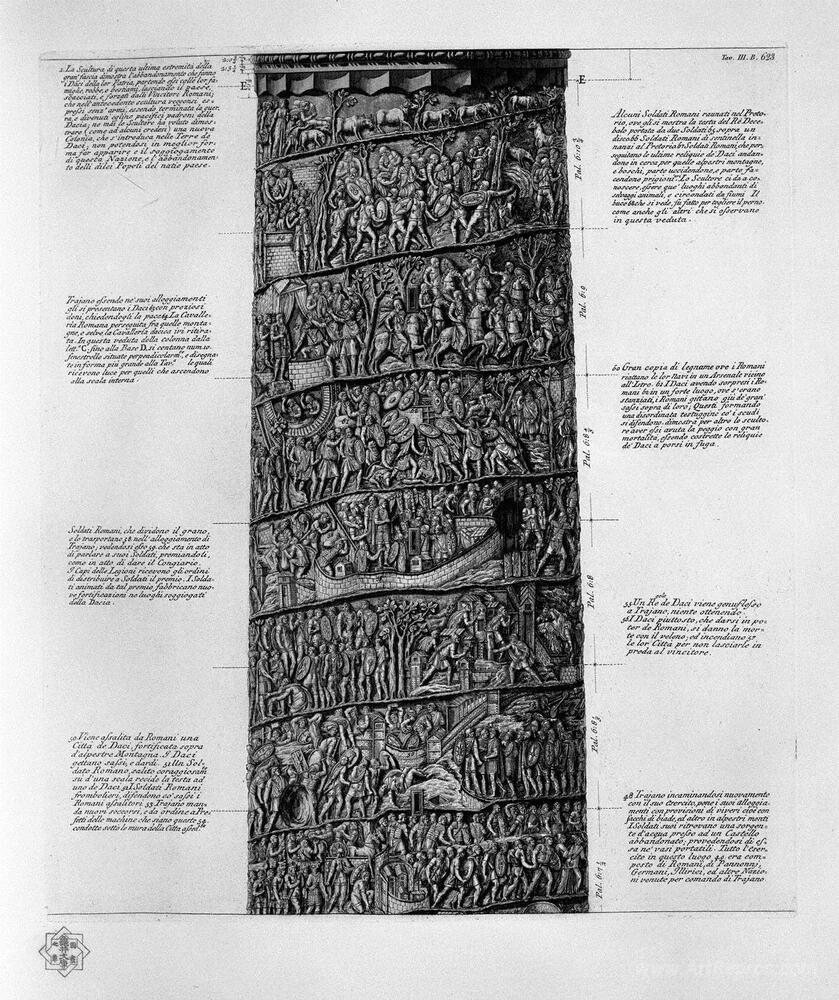 Tav. III. B. 623
2. La Scultura di questa ultima estremità della
gran' fascia dimostra l'abbandonamento che fanno
i Daci della lor Patria, partendo essi colle lor fa-
miglie, robbe, e bestiami, lasciando il paese,
discacciati, e forzati dalli Vincitori Romani;
che nell'antecedente scultura veggonsi es-
pressi senz'armi, essendo terminata la guer-
ra, e divenuti eglino pacifici padroni della
Dacia; ne mai lo Scultore ha voluto dimos-
trare (come ad alcuni credesi) una nuova
Colonia, che s'introduca nelle Terre de
Daci, non potendosi in miglior for-
ma far apparire e il soggiogamento
di questa Nazione, e l'abbandonamen-
to delli dilei Popoli del natio paese.
E
E
Alcuni Soldati Romani raunati nel Preto-
rio, ove gli si mostra la testa del Rè Dece-
balo portata da due Soldati 65 sopra un
disco 66 Soldati Romani di sentinella in-
nanzi al Pretorio 67 Soldati Romani, che per-
seguitano le ultime reliquie de' Daci, andan-
done in cerca per quelle alpestri montagne,
e boschi, parte uccidendone, e parte fa-
cendone prigioni. Lo Scultore ci dà a co-
noscere, essere que' luoghi abbondanti di
selvaggi animali, e circondati da fiumi Il
buco 68 che si vede, fù fatto per togliere il perno,
come anche gli altri che si osservano
in questa veduta.
Pal. 6:10
Trajano essendo ne' suoi alloggiamenti
gli si presentano i Daci 63 con preziosi
doni, chiedendogli la pace 64 La Cavalle-
ria Romana perseguita fra quelle monta-
gne, e selve la Cavalleria dacica ivi ritira-
ta. In questa veduta della colonna dalla
lett. C. fino alla Base D. si contano num. 10.
finestrelle situate perpendicolarm.e, e disegna-
te in forma più grande alla Tav. le quali
ricevono luce per quelli che ascendono
alla scala interna.
Pal. 6:9
60 Gran copia di legname ove i Romani
riattano le lor Navi in un Arsenale vicino
all'Istro. 61 I Daci avendo sorpresi i Ro-
mani 62 in un forte luogo, ove s'erano
stanziati, i Romani gettano giù de' gran'
sassi sopra di loro; Questi formando
una disordinata testuggine co' i scudi
si difendono. dimostra per altro lo sculto-
re aver essi avuta la peggio con gran
mortalità, essendo costrette le reliquie
de' Daci a porsi in fuga.
Pal. 6:8
Soldati Romani, che dividono il grano,
e lo trasportano 58 nell'alloggiamento di
Trajano; vedendosi esso 59 che sta in atto
di parlare a suoi Soldati, premiandoli,
come in atto di dare il Congiario.
I Capi delle Legioni ricevono gli ordini
di distribuire a Soldati il premio. I Solda-
ti animati da tal premio fabbricano nuo-
ve fortificazioni ne luoghi soggiogati
della Dacia.
Pal. 6:8
55 Un Re de Daci viene genuflesso
a Trajano, niente ottenendo.
56 I Daci piuttosto, che darsi in po-
ter de Romani, si danno la mor-
te con il veleno; ed incendiano 57
le lor Città per non lasciarle in
preda al vincitore.
Pal. 6:8
50 Viene assalita da Romani una
Città de Daci, fortificata sopra
d'alpestre Montagna I Daci
gettano sassi, e dardi. 51 Un Sol-
dato Romano, salito coraggiosam.te
su d'una scala recide la testa ad
uno de Daci 52 I Soldati Romani
frombolieri, difendono co' sassi i
Romani assalitori 53 Trajano man-
da nuovi soccorsi, e da ordine a Pre-
fetti delle machine che siano queste 54
condotte sotto le mura della Città assed.ta
48 Trajano incaminandosi nuovamente
con il suo Esercito, pone i suoi alloggia-
menti con provisioni di viveri cioè con
sacchi di biade, ed altro in alpestri monti
I Soldati suoi ritrovano una sorgen-
te d'acqua presso ad un Castello
abbandonato; provedendosi di es-
sa ne' vasi portatili. Tutto l'Eser-
cito in questo luogo 49 era com-
posto di Romani, di Pannonj,
Germani, Illirici, ed altre Nazio-
ni venute per comando di Trajano
Pal. 6:7